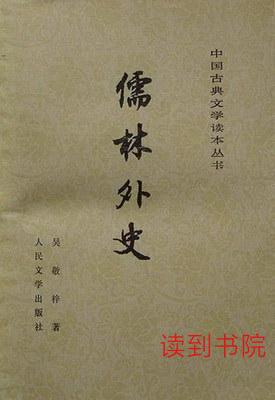 中国古典文学读本丛书
儒林外史
吴敬梓著
人民文学出版社
读到书院